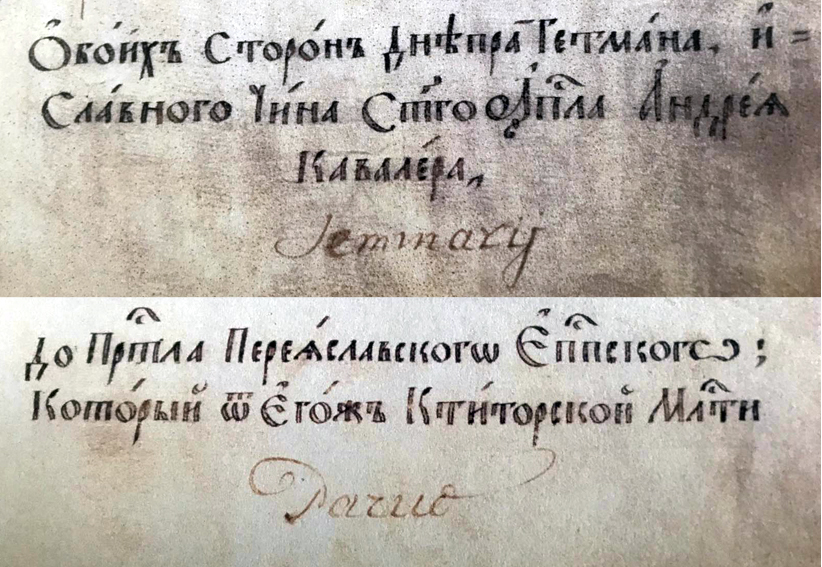 Ѻ҆бои́хъ Сторо́нъ Днѣпра̀ Гетма́на, и҆ =
Сла́вного Чи́на Ст҃го Ѻ҆Аⷭ҇пла А҆ндре́ѧ
Кавале́ра,
Seminarij
до Прⷭ҇тла Переѧ́славскогѡ Є҆пⷭ҇пского ;
Кото́рый ѿ Є҆го́жъ Кти́торской Млⷭ҇ти